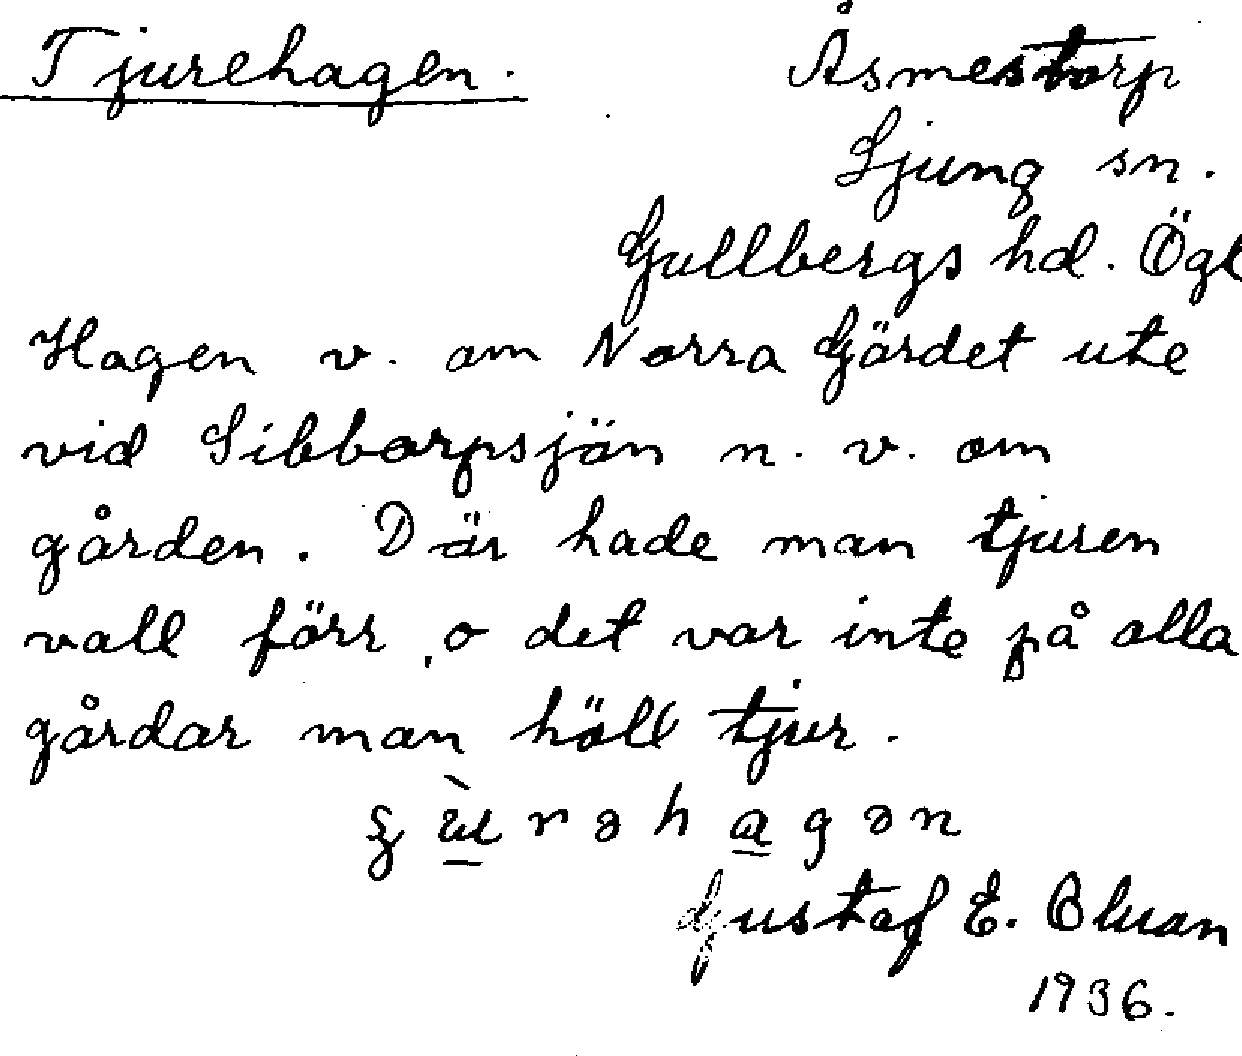 Tjurehagen. Åsmestorp
Ljung sn.
Gullbergs hd. Ögl
Hagen v. om Norra Gärdet ute
vid Sibborpsjön n. v. om
gården. Där hade man tjuren
vall förr, o det var inte på alla
gårdar man höll tjur.
Gustaf E. Bluan
1936.